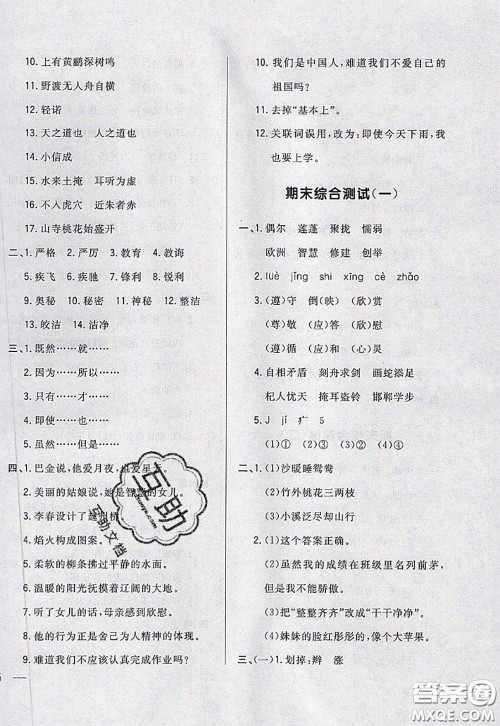 10. 上有黄鹂深树鸣
11. 野渡无人舟自横
12. 轻诺
13. 天之道也 人之道也
14. 小信成
15. 水来土掩 耳听为虚
16. 不入虎穴 近朱者赤
17. 山寺桃花始盛开
二、1. 严格 2. 严厉 3. 教育 4. 教诲
5. 疾飞 6. 疾驰 7. 锋利 8. 锐利
9. 奥秘 10. 秘密 11. 神秘 12. 整洁
13. 皎洁 14. 洁净
三、1. 既然……就……
2. 因为……所以……
3. 只有……才……
4. 即使……也……
5. 虽然……但是……
四、1. 巴金说,他爱月夜,也爱星天。
2. 美丽的姑娘说,她是智慧的女儿。
3. 李春设计了赵州桥。
4. 焰火构成图案。
5. 柔软的柳条拂过平静的水面。
6. 温暖的阳光抚摸着辽阔的大地。
7. 听了女儿的话,母亲感到欣慰。
8. 他的行为正是舍己为人精神的体现。
9. 难道我们不应该认真完成作业吗?
10. 我们是中国人,难道我们不爱自己的
祖国吗?
11. 去掉“基本上”。
12. 关联词误用,改为:即使今天下雨,我
也要上学。
期末综合测试(一)
一、1. 偶尔 莲蓬 聚拢 懦弱
欧洲 智慧 修建 创举
2. lüè jīng shi xīng cè zhǎo
3. (遵)守 倒(映) (欣)赏
(尊)敬 (应)答 (欣)慰
(遵)循 (应)和 (心)灵
4. 自相矛盾 刻舟求剑 画蛇添足
杞人忧天 掩耳盗铃 邯郸学步
5. J jí 疒 5
(1)① (2)② (3)③ (4)④
二、1. (1)沙暖睡鸳鸯
(2)竹外桃花三两枝
(3)小溪泛尽却山行
2. (1)这个答案正确。
(2)虽然我的成绩在班级里名列前茅,
但是我不能骄傲。
(3)把“整整齐齐”改成“干干净净”。
(4)妹妹的脸红彤彤的,像个大苹果。
三、(一)1. 划掉:辫 涨
互助
互助文档
答案圈
MXQE.COM